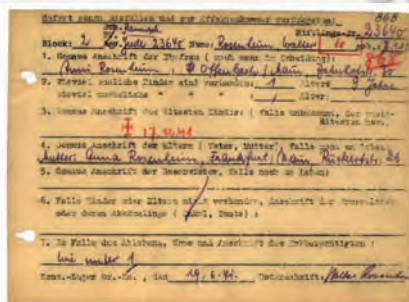 Sofort genau ausfüllen und zur Effektenkammer zurückgeben!
Häftlings-Nr. 23640
Block: 2 Jude 23640 Name: Rosenheim, Walter
1. Genaue Anschrift der Ehefrau ( auch wenn in Scheidung):
Rosenheim, Offenbach/Main,
2. Wieviel eheliche Kinder sind vorhanden: 1 Alter: 9 Jahre
Wieviel uneheliche " " Alter:
3. Genaue Anschrift des ältesten Kindes: ( falls unbekannt, der nächst-
ältesten usw.
17.12.41
4. Genaue Anschrift der Eltern ( Vater, Mutter), falls noch am Leben:
Mutter: Anna Rosenheim, Frankfurt/Main,
5. Genaue Anschrift der Geschwister, falls noch am Leben:
6. Falls Kinder oder Eltern nicht vorhanden, Anschrift der
oder deren Abkömmlinge ( ):
7. Im Falle des Ablebens, Name und Anschrift des Erbberechtigten :
wie unter 1
Konz.-Lager Gr.-Ro., den 19.6.41. Unterschrift: Walter Rosenheim